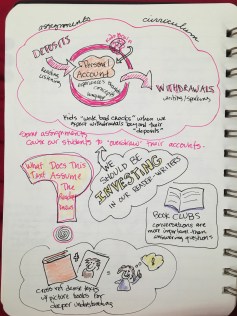 assignments
curriculum
DEPOSITS
Reading
Listening
Personal
Account
experiences
concepts
language
WITHDRAWALS
writing/speaking
Kids "write bad checks" when we
expect withdrawals beyond their
"deposits"
assignments
cause our students to "overdraw" their accounts.
What Does This
Text Assume
The
Reader
WE
SHOULD BE
INVESTING
IN OUR READER WRITERS
BOOK CLUBS
conversations are
more important than
answering questions
dense texts
w/ picture books for
deeper understanding